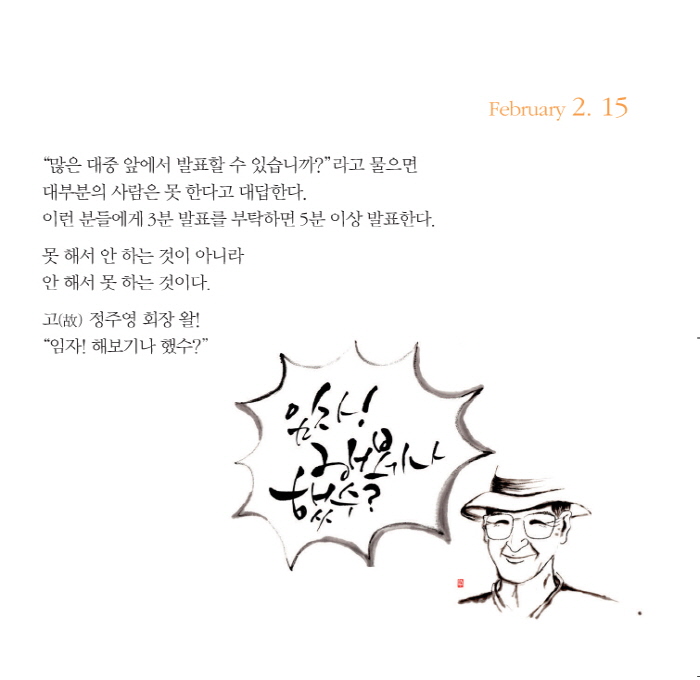 February 2. 15
“많은 대중 앞에서 발표할 수 있습니까?”라고 물으면
대부분의 사람은 못 한다고 대답한다.
이런 분들에게 3분 발표를 부탁하면 5분 이상 발표한다.
못 해서 안 하는 것이 아니라
안 해서 못 하는 것이다.
고(故) 정주영 회장 왈!
“임자! 해보기나 했수?”
임자!
해보기나
했수?